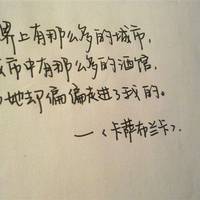 界上有那么多的城市，
城市中有那么多的酒馆，
她却偏偏走进了我的。
—《卡萨布兰卡》.